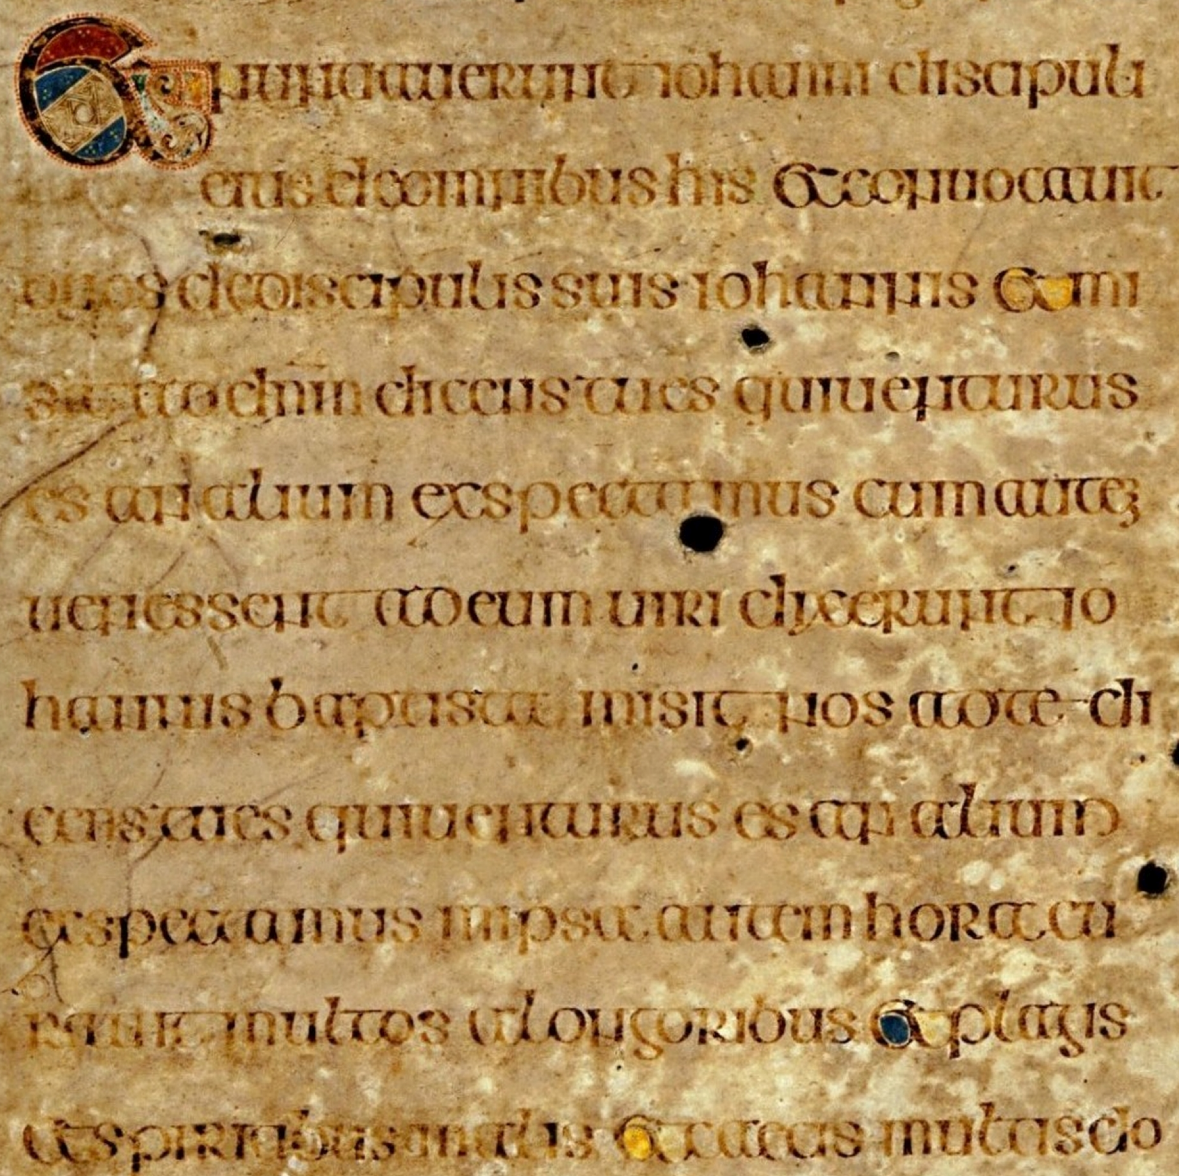 Et nuntiauerunt iohanni discipuli
eius de omnibus his et conuocauit
duos de discipulis suis iohannis et mi
sit ad dnm dicens tu es qui uenturus
es an alium exspectamus cum autē
uenessent ad eum uiri dixerunt io
hannis baptista misit nos ad te di
cens tu es qui uenturus es an alium
exspectamus in ipsa autem hora cu
rauit multos a longoribus et plagis
et spiritibus malis et caecis multis do